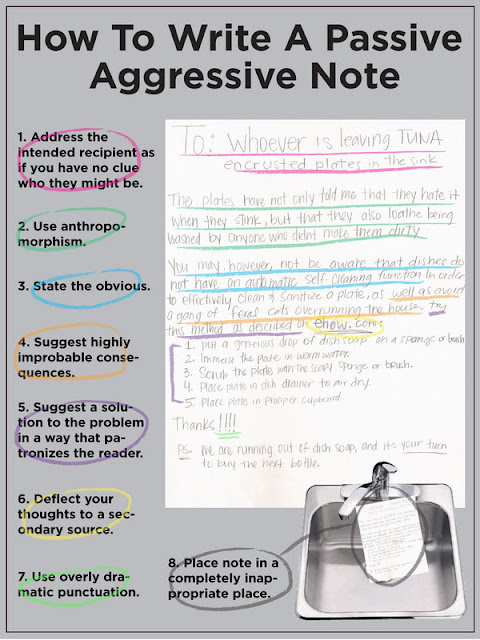 How To Write A Passive
Aggressive Note
1. Address the
intended recipient as
if you have no clue
who they might be.
2. Use anthropo-
morphism.
3. State the obvious.
4. Suggest highly
improbable conse-
quences.
5. Suggest a solu-
tion to the problem
in a way that pa-
tronizes the reader.
6. Deflect your
thoughts to a sec-
ondary source.
7. Use overly dra-
matic punctuation.
To: Whoever is leaving TUNA
encrusted plates in the sink
The plates have not only told me that they hate it
when they stink, but that they also loathe being
washed by anyone who didnt make them dirty.
You may, however, not be aware that dishes do
not have an automatic self cleaning function. In order
to effectively clean & sanitize a plate, as well as avoid
a gang of feral cats overrunning the house, try
this method as described on ehow.com:
1. put a generous drop of dish soap on a sponge or brush
2. Immerse the plate in warm water.
3. Scrub the plate with the soapy sponge or brush.
4. Place plate in dish drainer to air dry.
5. Place plate in propper cupboard.
Thanks!!!!
PS- We are running out of dish soap, and its your turn
to buy the next bottle.
8. Place note in a
completely inap-
propriate place.